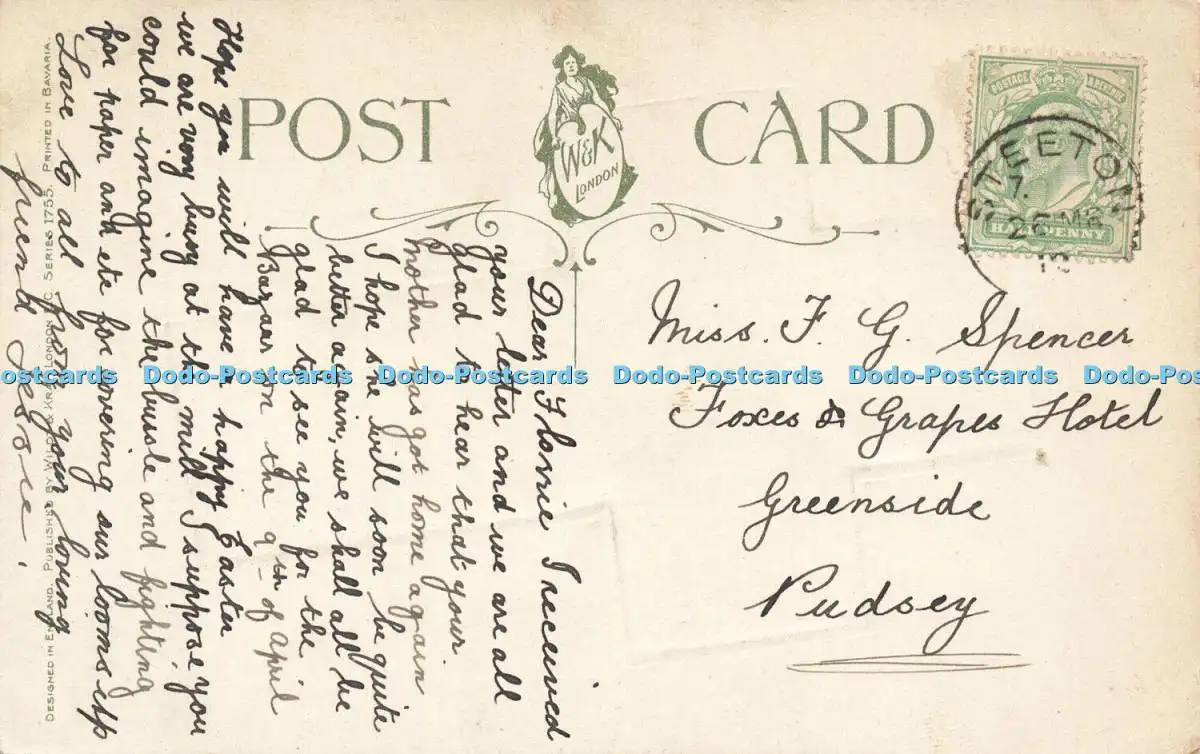 POST CARD
W&K
LONDON
POSTAGE
HALFPENNY
STEETON
7.
26 MR
10
Miss. F. G. Spencer
Foxes & Grapes Hotel
Greenside
Pudsey
Dear Florrie I received
your letter and we are all
glad to hear that your
mother has got home again
I hope she will soon be quite
better again, we shall all be
glad to see you for the
Bazaar on the 9th of April
Hope you will have a happy Easter
we are very busy at the mill I suppose you
could imagine the bussle and fighting
for paper and etc for covering our looms up
Love to all from your loving
friend Jessie.
DESIGNED IN ENGLAND. PUBLISHED BY LONDON SERIES 1755. PRINTED IN BAVARIA.
Dodo-Postcards Dodo-Postcards Dodo-Postcards Dodo-Postcards